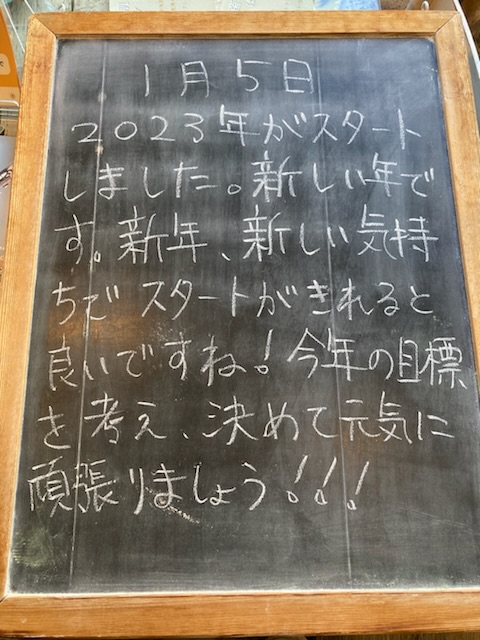 1月5日
2023年がスタート
しました。新しい年で
す。新年、新しい気持
ちでスタートがきれると
良いですね!今年の目標
を考え、決めて元気に
頑張りましょう!!!